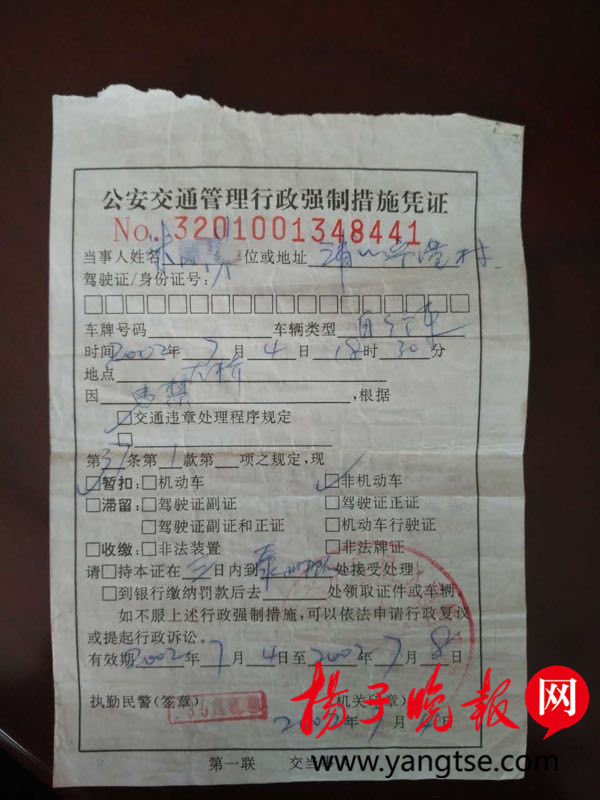 公安交通管理行政强制措施凭证
No.3201001348441
当事人姓名 单位或地址 浦口 村
驾驶证/身份证号:
车牌号码 车辆类型 自行车
时间2002年7月4日18时30分
地点 大桥
因 ,根据
□交通违章处理程序规定
□
第37条第1款第 项之规定,现
□暂扣:□机动车 □非机动车
□滞留:□驾驶证副证 □驾驶证正证
□驾驶证副证和正证 □机动车行驶证
□收缴:□非法装置 □非法牌证
请□持本证在三日内到 处接受处理。
□到银行缴纳罚款后去 处领取证件或车辆。
如不服上述行政强制措施,可以依法申请行政复议
或提起行政诉讼。
有效期2002年7月4日至2002年7月8日
执勤民警(签章) 机关(章)
2002年7月 日
第一联 交当
扬子晚报网
www.yangtse.com